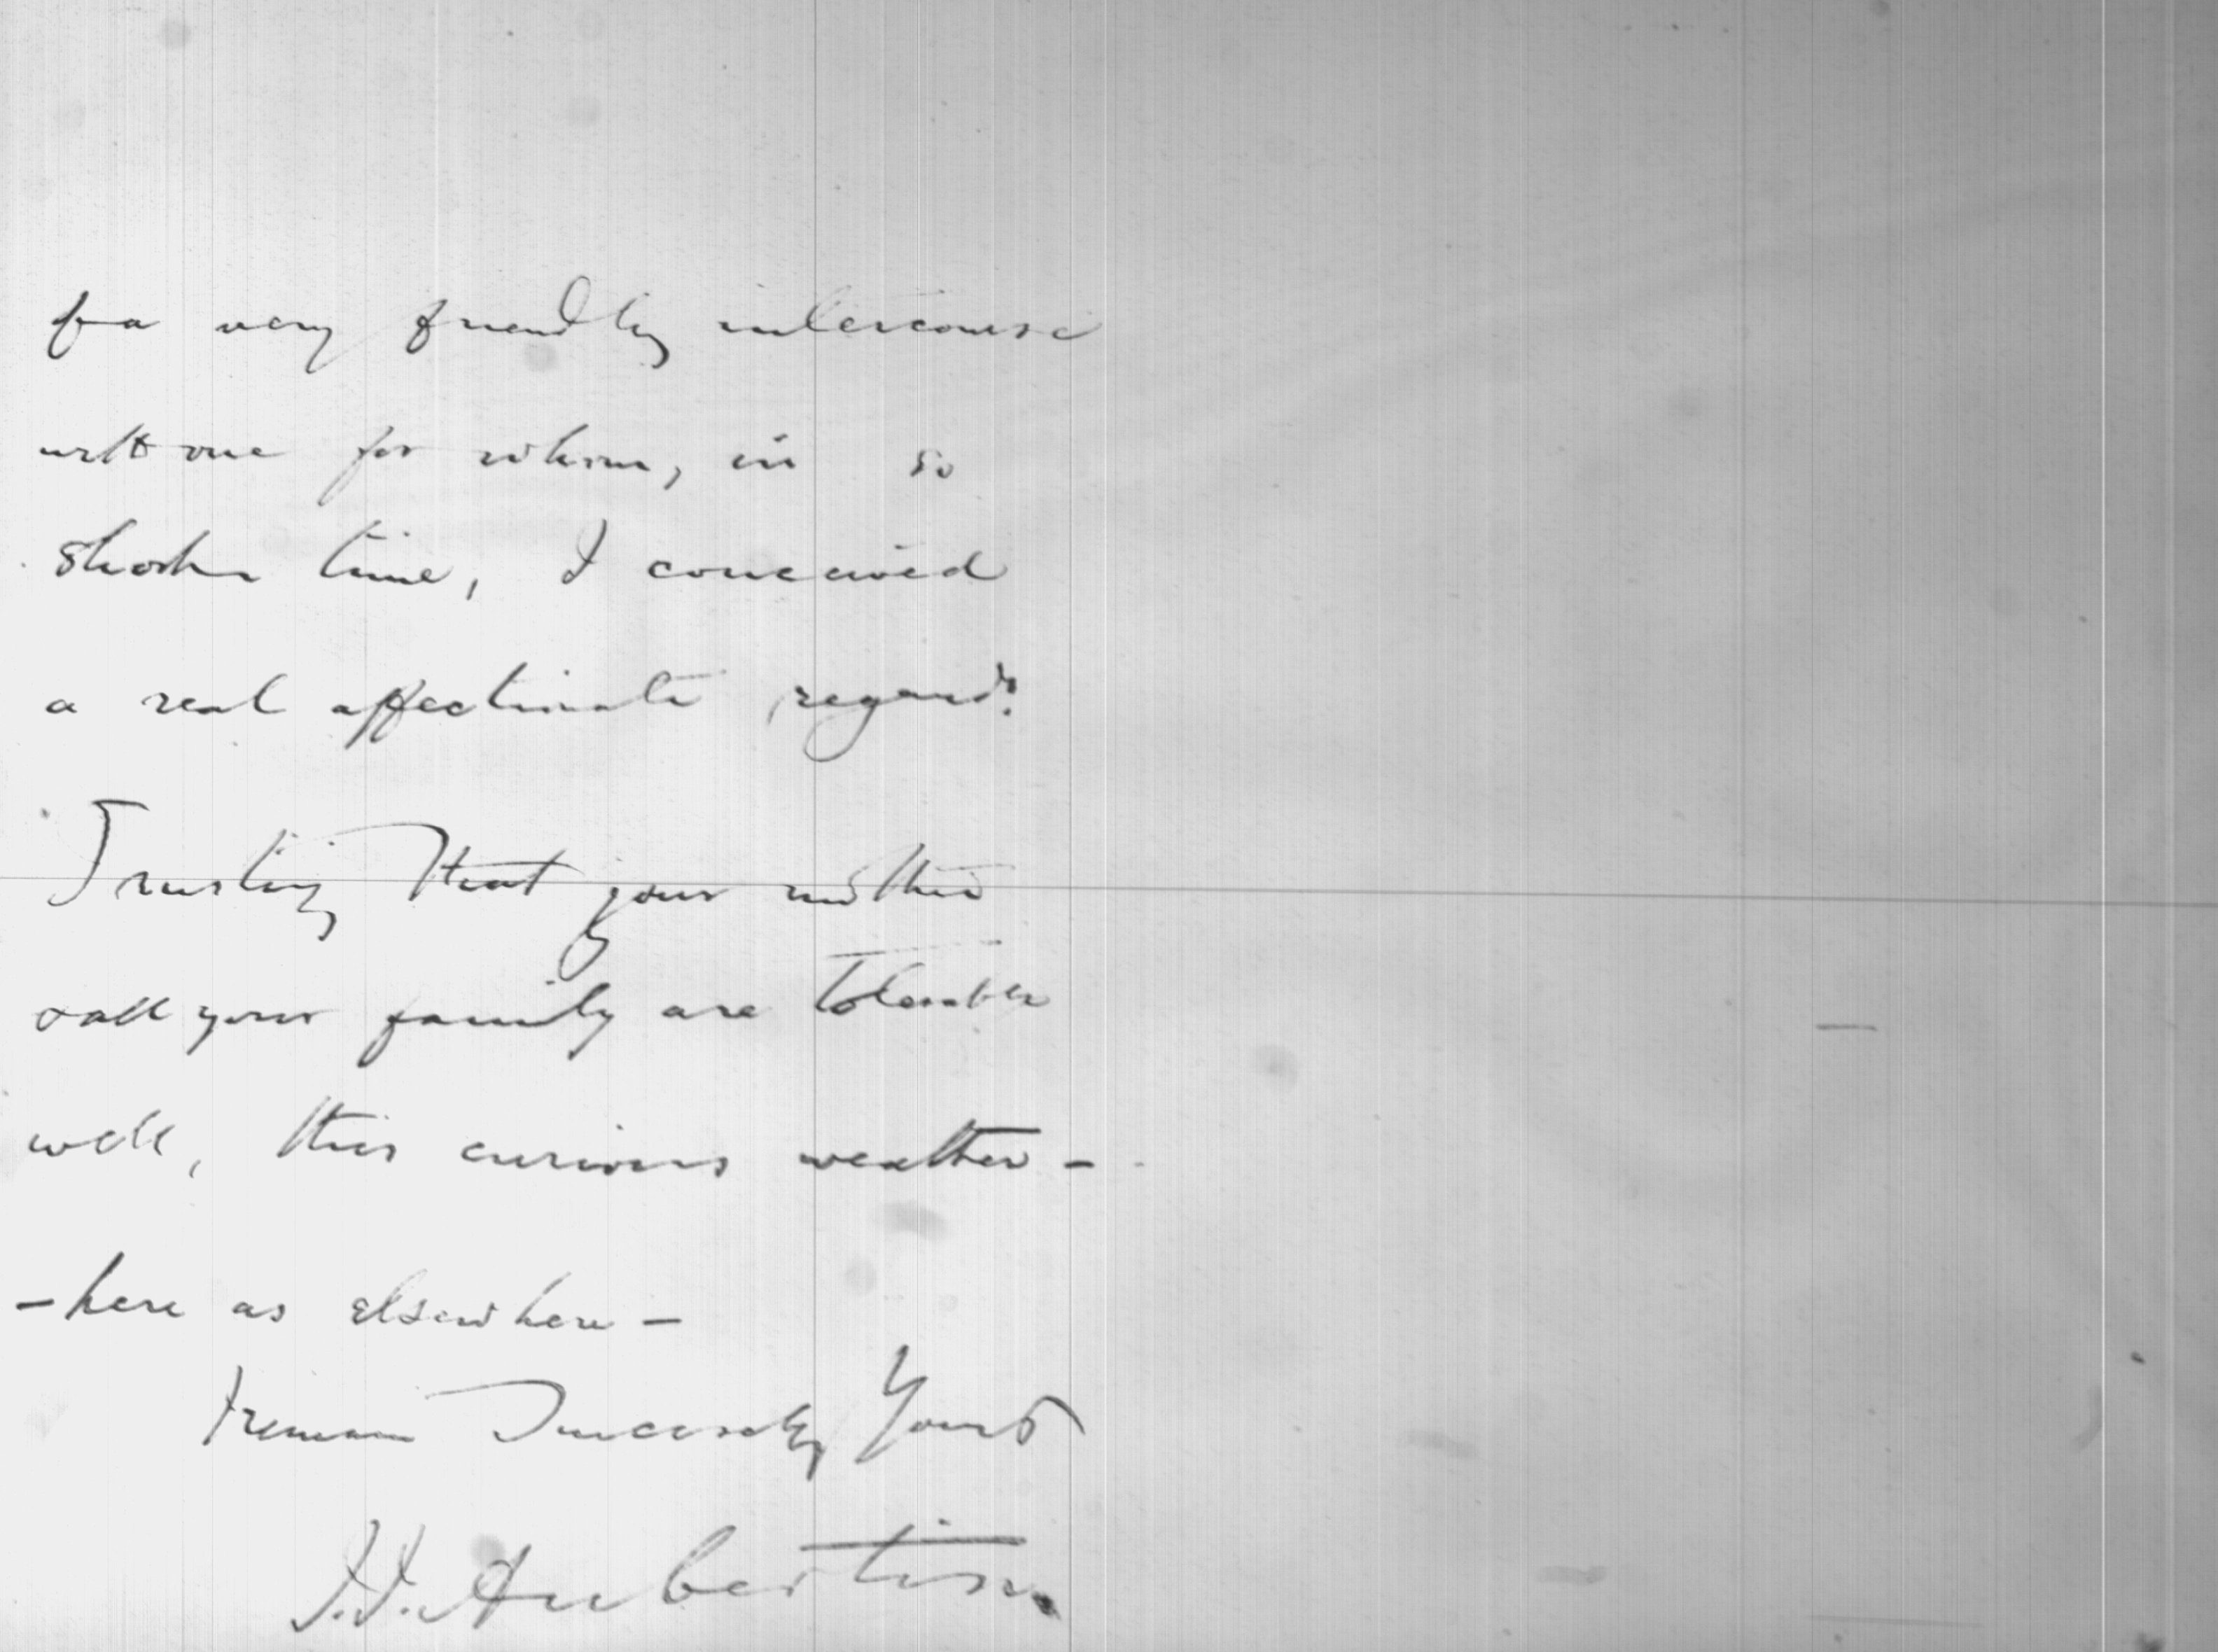 for a very friendly intercourse
with one for whom, in so
short a time, I conceived
a real affectionate regard.
Trusting that your mother
& all your family are tolerably
well, this curious weather -
- here as elsewhere -
I remain Sincerely Yours
J.J. Aubertin.